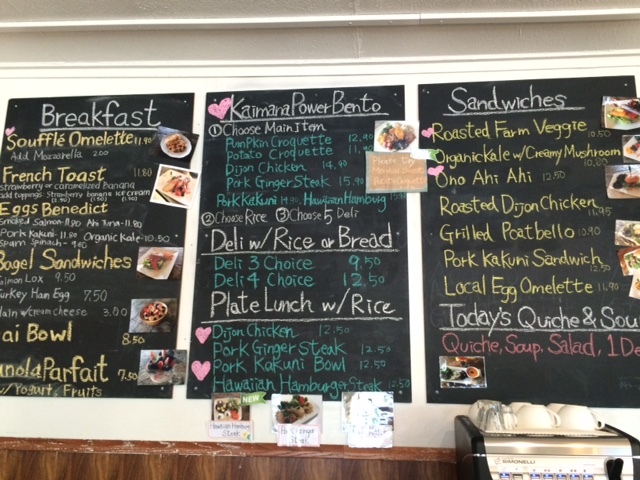 Breakfast
Soufflé Omelette 11.90
Add Mozzarella 2.00
French Toast 11.80
strawberry or caramelized banana
add toppings: strawberry banana ice cream
Eggs Benedict
Smoked Salmon-11.80 Ahi Tuna-11.80
Pork Kakuni-11.80 Organic Kale-10.50
Spam Spinach-9.80
Bagel Sandwiches
Salmon Lox 9.50
Turkey Ham Egg 7.50
Plain w/cream cheese 3.00
ai Bowl 8.50
nola Parfait 7.50
w/Yogurt, Fruits
Kaimana Power Bento
① Choose Main Item
Pumpkin Croquette 12.90
Potato Croquette 11.90
Dijon Chicken 14.90
Pork Ginger Steak 15.90
Pork Kakuni 14.90 Hawaiian Hamburg
② Choose Rice ③ Choose 5 Deli
Deli w/Rice or Bread
Deli 3 Choice 9.50
Deli 4 Choice 12.50
Plate Lunch w/Rice
Dijon Chicken 12.50
Pork Ginger Steak 12.50
Pork Kakuni Bowl 12.50
Hawaiian Hamburger Steak 12.50
NEW
Hawaiian Hamburg
Steak
Steak
Sandwiches
Roasted Farm Veggie 10.50
Organic Kale w/Creamy Mushroom 10.80
Ono Ahi Ahi 12.50
Roasted Dijon Chicken 11.95
Grilled Portbello 10.90
Pork Kakuni Sandwich 12.50
Local Egg Omelette 11.90
Today's Quiche & Sou
Quiche, Soup, Salad, 1 De
SIMONELLI